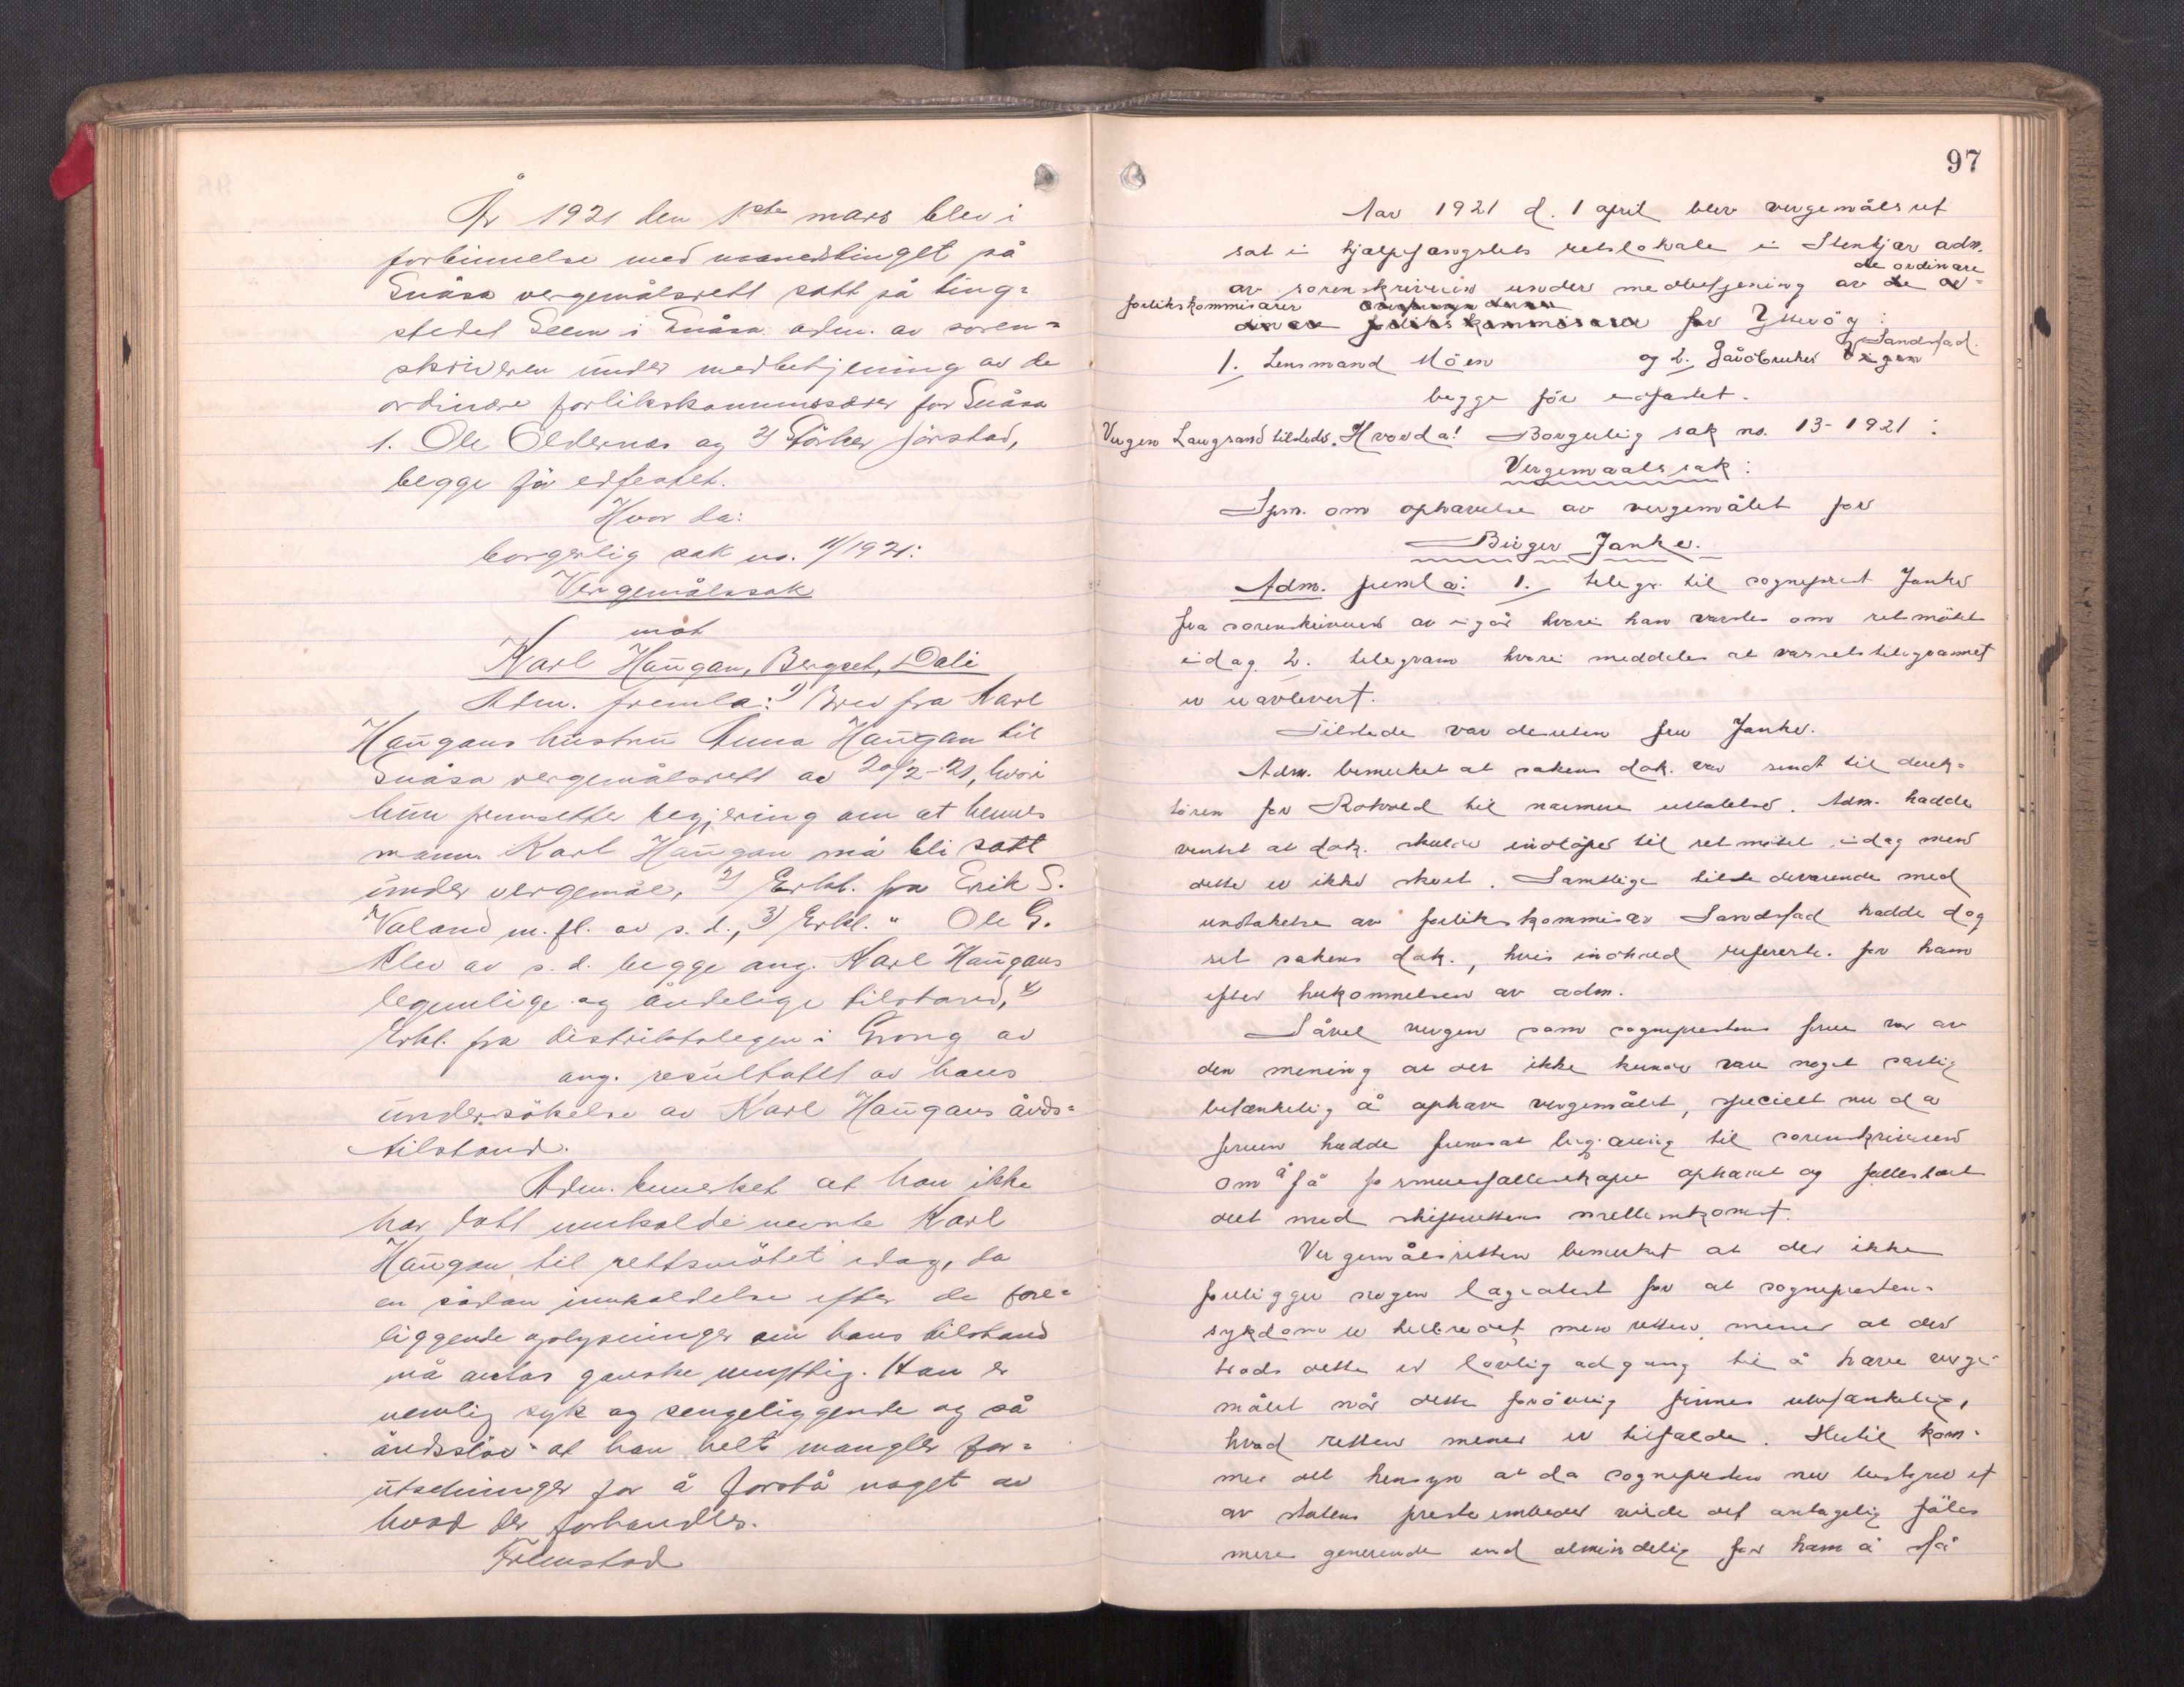 År 1921 den 1ste mars blev i
forbinnelse med manedstinget på
Snåsa vergemålsrett satt på ting=
stedet Seem i Snåsa adm. av soren=
skriveren under medbetjening av de
ordinære forlikskommissærer for Snåsa
1. Ole Oldernes og 2) Törker Jörstad,
begge för edfestet.
Hvor da:
borgerlig sak no. 11/1921:
Vergemålssak
mot
Karl Haugan, Bergset, Dali
Adm. fremla: 1) Brev fra Karl
Haugans hustru Anna Haugan til
Snåsa vergemålsrett av 20/2-21, hvori
hun fremsetter begjering om at hennes
mann Karl Haugan må bli satt
under vergemål, 2) Erkl. fra Erik S.
Valand m. fl. av s. d., 3) Erkl. " Ole G.
Klev av s. d. begge ang. Karl Haugans
legemlige og åndelige tilstand, 4)
Erkl. fra distriktslegen i Grong av
ang. resultatet av hans
undersökelse av Karl Haugans ånds=
tilstand.
Adm. bemerket at han ikke
har latt innkalde nevnte Karl
Haugan til rettsmötet idag, da
en sådan innkaldelse efter de fore=
liggende oplysninger om hans tilstand
må antas ganske unyttig. Han er
nemlig syk og sengeliggende og så
åndsslöv at han helt mangler for=
utsetninger for å forstå noget av
hvad der forhandles.
97
Aar 1921 d. 1 april blev vergemålsret
sat i hjælpefængslets retslokale i Stenkjær adm.
de ordinære
av sorenskriveren under medbetjening av de or=
forlikskommisærer
dinære forlikskommisærer for Ytterög:
Sandstad.
1. Lensmand Möen og 2. Gårdbruker
begge för edfæstet.
Vergen Langrand tilstede. Hvorda! Borgerlig sak no. 13-1921:
Vergemaalssak:
Spm. om ophævelse av vergemålet for
Birger Janke.
Adm. fremla: 1. telegr. til sogneprest Janke
fra sorenskriveren av igår hvori han varsles om retsmötet
idag. 2. telegram hvori meddeles at varselstelegrammet
er uavlevert.
Tilstede var desuten fru Janke.
Adm. bemerket at sakens dok. var sendt til direk=
tören for Rotvold til nærmere uttalelse. Adm. hadde
ventet at dok. skulde indlöpe til retsmötet idag men
dette er ikke skeet. Samtlige tilstedeværende med
undtakelse av forlikskommisær Sandstad hadde dog
set sakens dok., hvis indhold refererte. for ham
efter hukommelsen av adm.
Såvel vergen som sogneprestens frue var av
den mening at det ikke kunde være noget særlig
betænkelig å ophæve vergemålet, specielt nu da
fruen hadde fremsat begjæring til sorenskriveren
om å få formuesfællesskapet ophævet og fællesboet
delt med skifterettens mellemkomst.
Vergemålsretten bemerket at der ikke
foreligger nogen lægeatest for at sogneprestens
sykdom er helbredet men retten mener at der
trods dette er lovlig adgang til å hæve verge-
målet når dette forövrig finnes ubetænkelig,
hvad retten mener er tilfælde. Hertil kom-
mer det hensyn at da sognepresten nu bestyrer et
av statens presteembeder vilde det antagelig föles
mere generende end almindelig for ham å stå